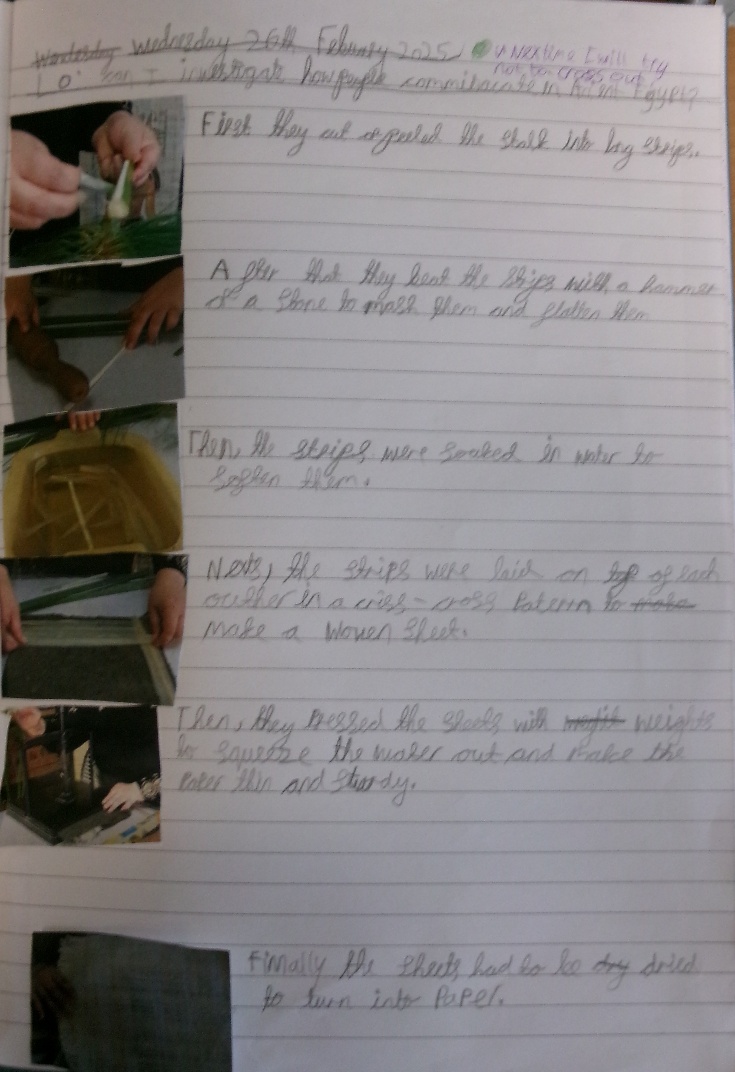 Wensterday wednesday 26th Febuary 2025
v Nextime I will try
not to cross out
L.O: can I investigate how people commihacate in Anient Egypt?
First they cut or peeled the stalk into long strips.
After that they beat the strips with a hammer
or a stone to mash them and flatten them
Then, the strips were soaked in water to
soften them.
Nexs, the strips were laid on top of each
oather in a criss-cross Paterin to make
make a Woven sheet.
Then, they Pressed the sheets with weights
to squeeze the water out and make the
Paper thin and sturdy.
Finally the sheets had to be dry dried
to turn into Paper.